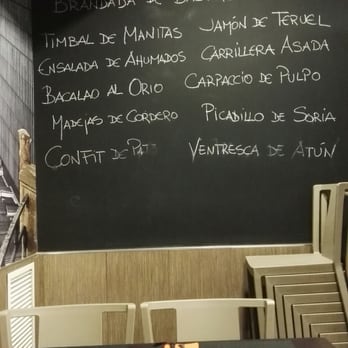 BRANDADA DE
TIMBAL DE MANITAS
ENSALADA DE AHUMADOS
BACALAO AL ORIO
MADEJAS DE CORDERO
CONFIT DE
JAMÓN DE TERUEL
CARRILLERA ASADA
CARPACCIO DE PULPO
PICADILLO DE SORIA
VENTRESCA DE ATÚN